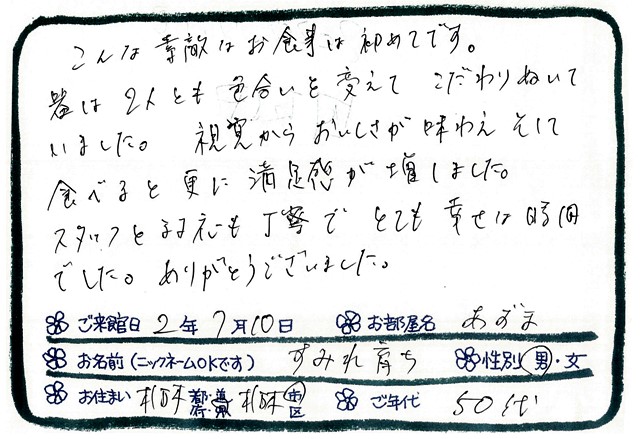 こんな素敵なお食事は初めてです。
器は2人とも色合いを変えて こだわりぬいて
いました。 視覚からおいしさが味わえ そして
食べると更に満足感が増しました。
スタッフと対応も丁寧で とても幸せな時間
でした。ありがとうございました。
ご来館日 2年 7月10日 お部屋名 あずま
お名前(ニックネームOKです) すみれ育ち 性別 男・女
お住まい 栃木 都道府県 栃木 市区 ご年代 50代